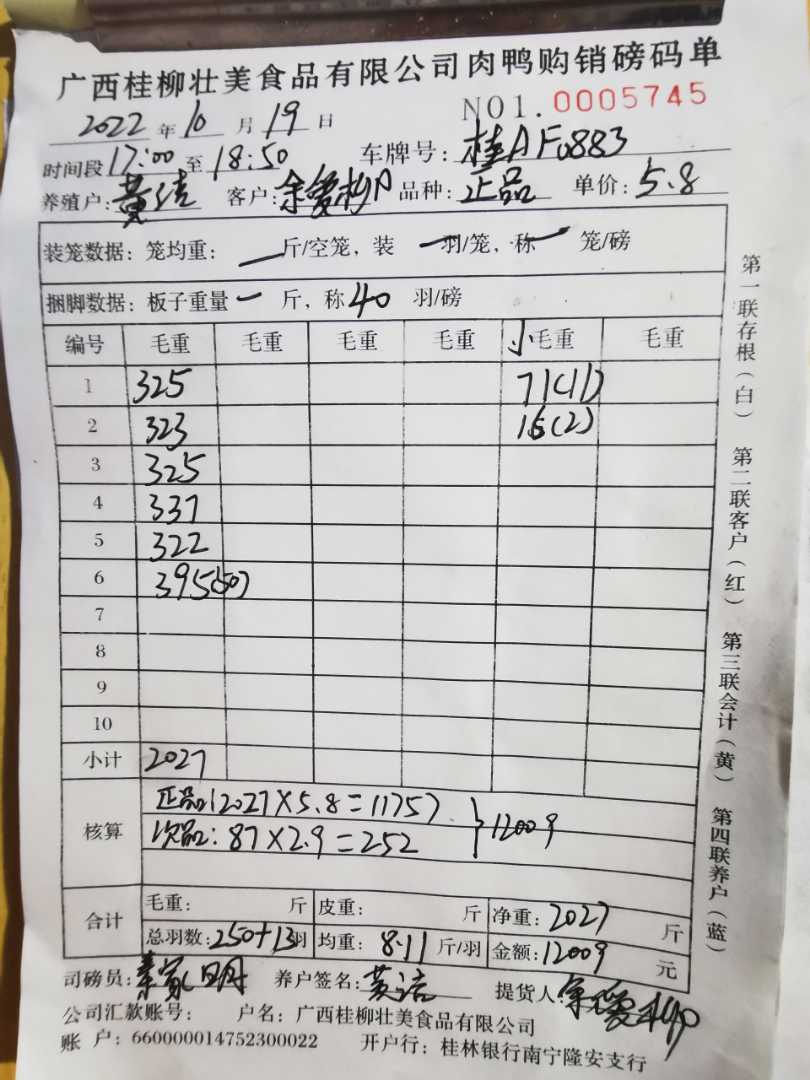 广西桂柳壮美食品有限公司肉鸭购销磅码单
2022年10月19日 NO1.0005745
时间段17:00至18:50 车牌号:桂AF0883
养殖户:黄洁 客户:余爱 品种:正品 单价:5.8
装笼数据:笼均重:— 斤/空笼,装 — 羽/笼,称 — 笼/磅
捆脚数据:板子重量 — 斤,称40 羽/磅
编号 毛重 毛重 毛重 毛重 小毛重 毛重
1 325 71(11)
2 323 16(2)
3 325
4 337
5 322
6 395(50)
7
8
9
10
小计 2027
核算 正品:2027×5.8=11757
次品:87×2.9=252 }12009
合计 毛重: 斤 皮重: 斤 净重:2027 斤
总羽数:250+13羽 均重:8.11 斤/羽 金额:12009 元
司磅员: 养户签名:黄洁 提货人:余爱
公司汇款账号: 户名:广西桂柳壮美食品有限公司
账 户:660000014752300022 开户行:桂林银行南宁隆安支行
第一联存根(白) 第二联客户(红) 第三联会计(黄) 第四联养户(蓝)